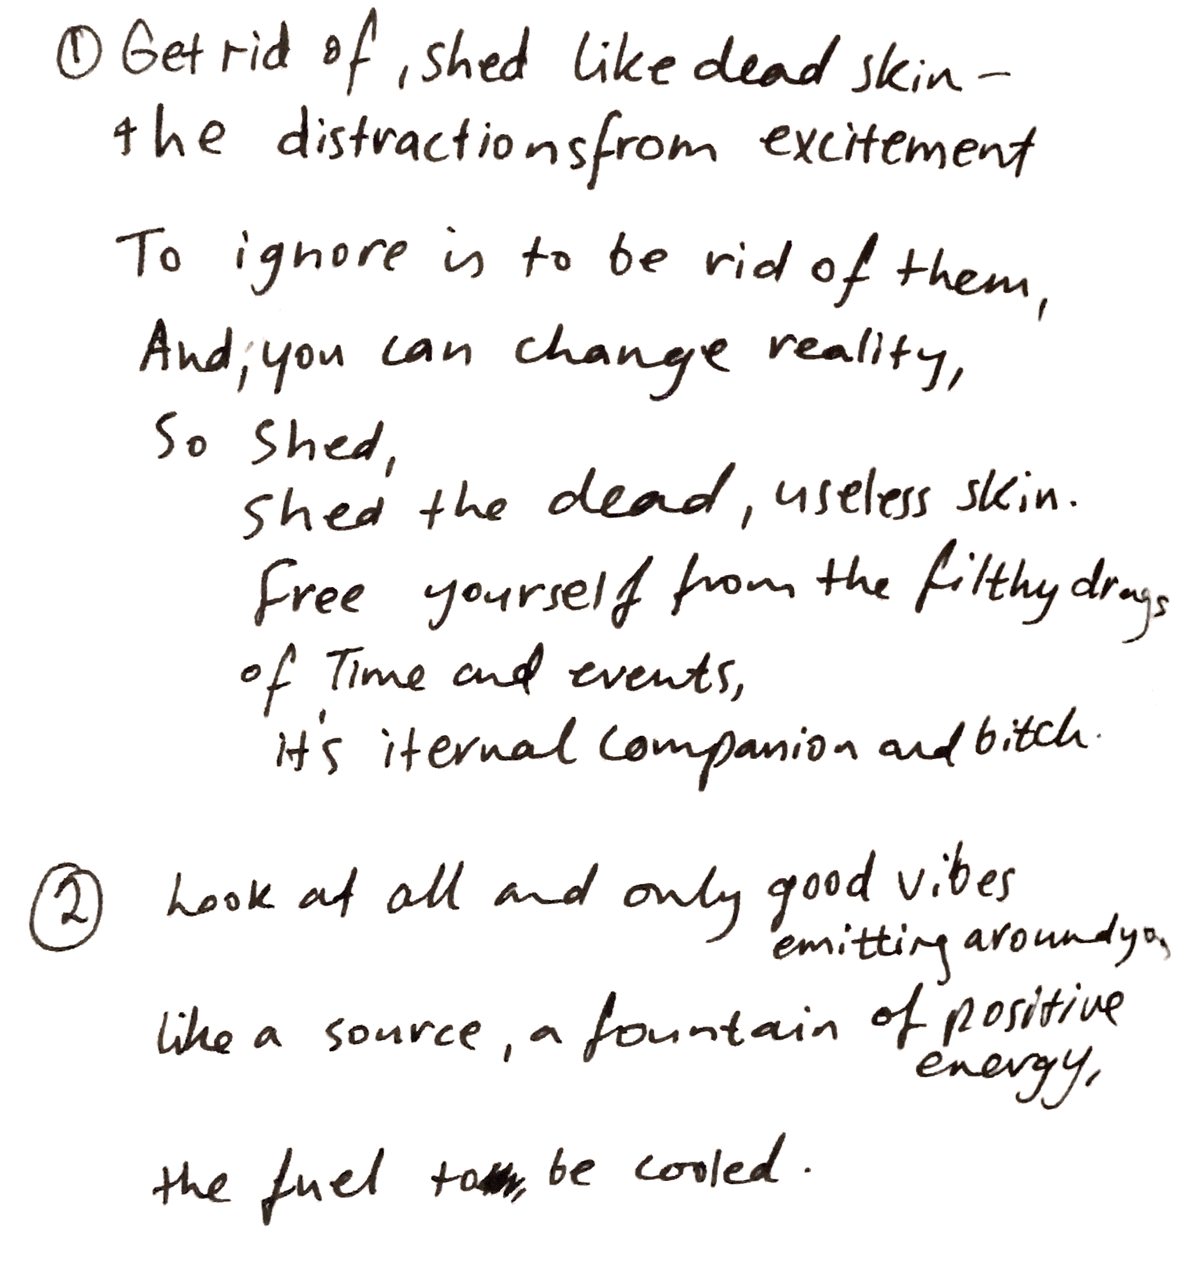 ① Get rid of, shed like dead skin –
the distractions from excitement
To ignore is to be rid of them,
And, you can change reality,
So shed,
shed the dead, useless skin.
Free yourself from the filthy drags
of Time and events,
it's iternal companion and bitch.
② Look at all and only good vibes
emitting around you
like a source, a fountain of positive
energy,
the fuel to be cooled.